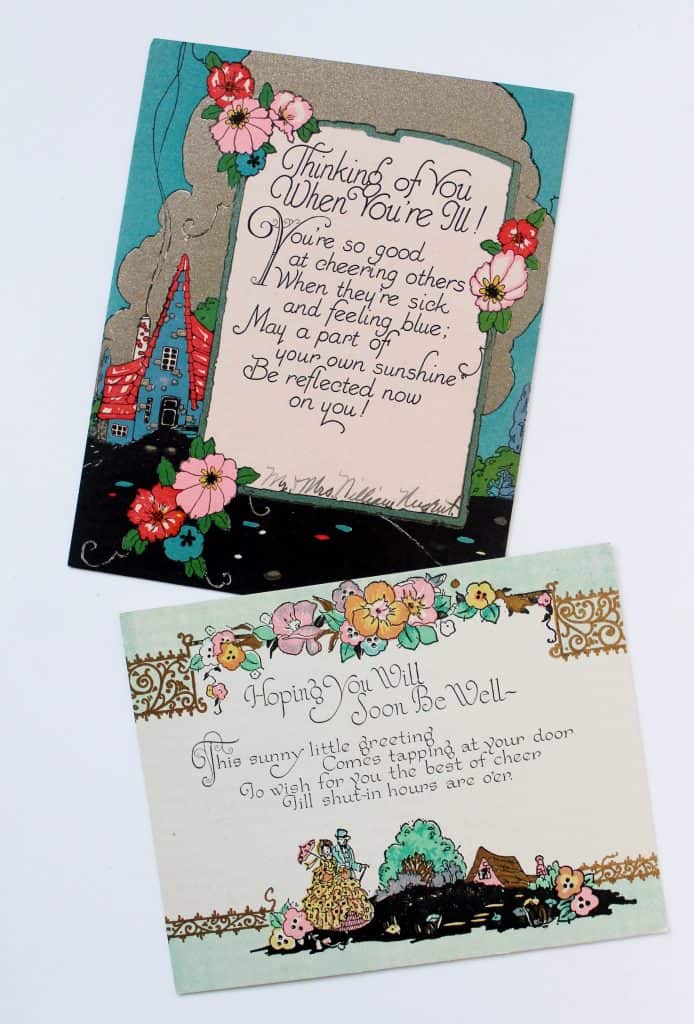 Thinking of You
When You're Ill!
You're so good
at cheering others
When they're sick
and feeling blue;
May a part of
your own sunshine
Be reflected now
on you!
Mr. Mrs. William
Hoping You Will
Soon Be Well~
This sunny little greeting
Comes tapping at your door
To wish for you the best of cheer
Till shut-in hours are o'er.